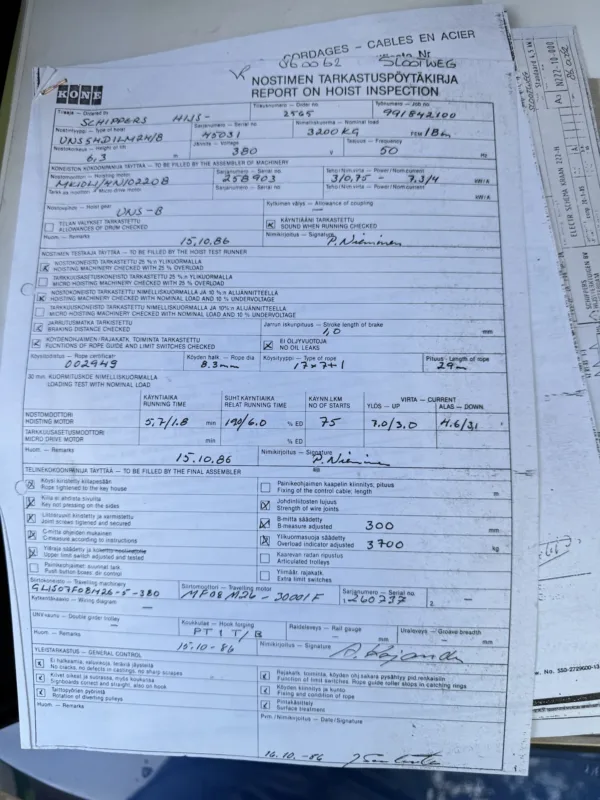 CORDAGES – CABLES EN ACIER
SLOOTWEG
KONE
NOSTIMEN TARKASTUSPÖYTÄKIRJA
REPORT ON HOIST INSPECTION
Tilaaja – Ordered by
SCHIPPERS HIJS-
Tilausnumero – Order no.
2565
Työnumero – Job no.
991842100
Nostintyyppi – Type of hoist
Sarjanumero – Serial no.
45031
Nimelliskuorma – Nominal load
3200 KG
FEM
Nostokorkeus – Height of lift
6,3 m
Jännite – Voltage
380 V
Taajuus – Frequency
50 Hz
KONEISTON KOKOONPANIJA TÄYTTÄÄ – TO BE FILLED BY THE ASSEMBLER OF MACHINERY
Nostomoottori – Hoisting motor
Sarjanumero – Serial no.
258903
Teho/Nim.virta – Power/Nom.current
3/0,75 – 7.3/4
kW/A
Sarjanumero – Serial no.
Teho/Nim.virta – Power/Nom.current
kW/A
Nostovaihde – Hoist gear
UNS-B
Kytkimen välys – Allowance of coupling
TELAN VÄLYKSET TARKASTETTU
ALLOWANCES OF DRUM CHECKED
KÄYNTIÄÄNI TARKASTETTU
SOUND WHEN RUNNING CHECKED
Huom. – Remarks
15.10.86
Nimikirjoitus – Signature
P. Nieminen
NOSTIMEN TESTAAJA TÄYTTÄÄ – TO BE FILLED BY THE HOIST TEST RUNNER
NOSTOKONEISTO TARKASTETTU 25 %:n YLIKUORMALLA
HOISTING MACHINERY CHECKED WITH 25 % OVERLOAD
TARKKUUSASETUSKONEISTO TARKASTETTU 25 %:n YLIKUORMALLA
MICRO HOISTING MACHINERY CHECKED WITH 25 % OVERLOAD
NOSTOKONEISTO TARKASTETTU NIMELLISKUORMALLA JA 10 %:n ALIJÄNNITTEELLÄ
HOISTING MACHINERY CHECKED WITH NOMINAL LOAD AND 10 % UNDERVOLTAGE
TARKKUUSASETUSKONEISTO TARKASTETTU NIMELLISKUORMALLA JA 10 %:n ALIJÄNNITTEELLÄ
MICRO HOISTING MACHINERY CHECKED WITH NOMINAL LOAD AND 10 % UNDERVOLTAGE
JARRUTUSMATKA TARKISTETTU
BRAKING DISTANCE CHECKED
Jarrun iskunpituus – Stroke length of brake
1,0 mm
KÖYDENOHJAIMEN/RAJAKATK. TOIMINTA TARKASTETTU
FUNCTIONS OF ROPE GUIDE AND LIMIT SWITCHES CHECKED
EI ÖLJYVUOTOJA
NO OIL LEAKS
Köysitodistus – Rope certificate
002949
Köyden halk. – Rope dia
8.3 mm
Köysityyppi – Type of rope
17×7+1
Pituus – Length of rope
29 m
30 min. KUORMITUSKOE NIMELLISKUORMALLA
LOADING TEST WITH NOMINAL LOAD
KÄYNTIAIKA
RUNNING TIME
SUHT.KÄYNTIAIKA
RELAT.RUNNING TIME
KÄYN.LKM
NO OF STARTS
VIRTA – CURRENT
YLÖS – UP
ALAS – DOWN
NOSTOMOOTTORI
HOISTING MOTOR
5,7/1.8 min
% ED
75
7.0/3.0
4.6/3.1
TARKKUUSASETUSMOOTTORI
MICRO DRIVE MOTOR
min
% ED
Huom. – Remarks
15.10.86
Nimikirjoitus – Signature
P. Nieminen
TELINEKOKOONPANIJA TÄYTTÄÄ – TO BE FILLED BY THE FINAL ASSEMBLER
Köysi kiristetty kiilapesään
Rope tightened to the key house
Painikeohjaimen kaapelin kiinnitys, pituus
Fixing of the control cable; length m
Kiila ei ahdista sivuilta
Key not pressing on the sides
Johdinliitosten lujuus
Strength of wire joints
Liitosruuvit kiristetty ja varmistettu
Joint screws tigtened and secured
B-mitta säädetty
B-measure adjusted
300 mm
C-mitta ohjeiden mukainen
C-measure according to instructions
Ylikuormasuoja säädetty
Overload indicator adjusted
3700 kg
Upper limit switch adjusted and tested
Kaarevan radan ripustus
Articulated trolleys
Painikeohjaimet suunnat tark.
Push button boxes dir control
Ylimäär. rajakatk.
Extra limit switches
Siirtokoneisto – Travelling machinery
Siirtomoottori – Travelling motor
Sarjanumero – Serial no.
1260237
2.
Kytkentäkaavio – Wiring diagram
UNV-vaunu – Double girder trolley
Koukkutae – Hook forging
PT 1 T/B
Raideleveys – Rail gauge
mm
Uraleveys – Groove breadth
mm
Huom. – Remarks
15.10-86
Nimikirjoitus – Signature
YLEISTARKASTUS – GENERAL CONTROL
Ei halkeamia, valuvikoja, teräviä jäysteitä
No cracks, no defects in castings, no sharp scrapes
Rajakatk. toiminta, köyden ohj.sakara pysähtyy pid.renkaisiin
Function of limit switches. Rope guide roller stops in catching rings
Kilvet oikeat ja suorassa, myös koukussa
Signboards correct and straight, also on hook
Köyden kiinnitys ja kunto
Fixing and condition of rope
Taittopyörien pyörintä
Rotation of diverting pulleys
Pintakäsittely
Surface treatment
Huom. – Remarks
Pvm./Nimikirjoitus – Date/Signature
16.10.-86